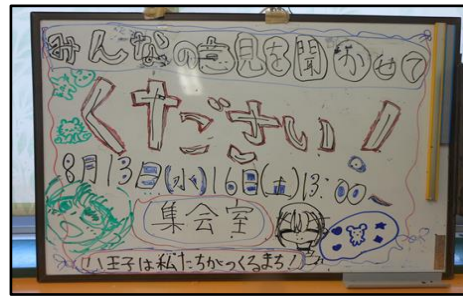 みんなの意見を聞かせて
くださいー!
8月13日(水)16日(土)13:00~
集会室
八王子は私たちがつくるまち!